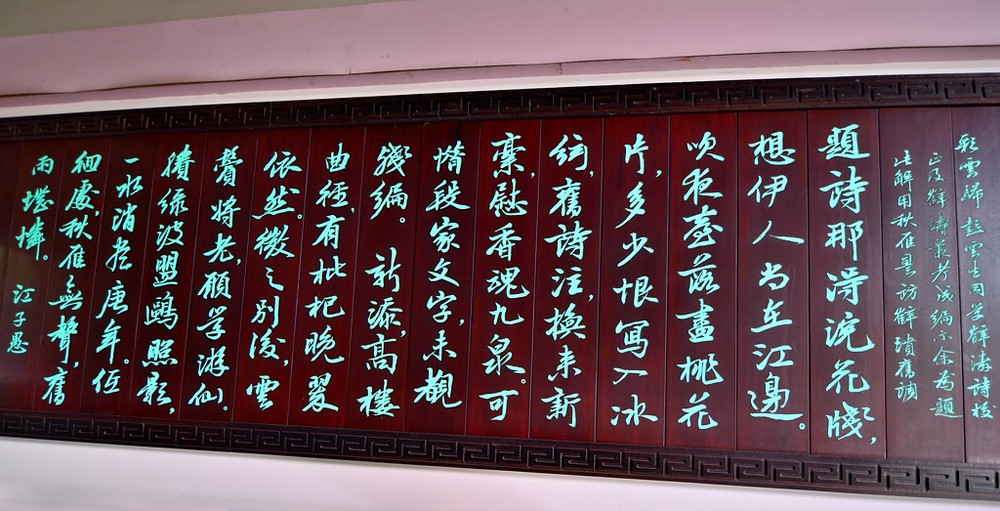 彩雲歸 彭雲生同學薛濤詩校
正及薛濤叢考成編余為題
注解用秋雁訪薛墳舊調
題詩那得浣花牋，
想伊人尚在江邊。
吹夜臺落盡桃花
片，多少恨寫入冰
絃，舊詩注，換來新
稾，慰香魂九泉。可
惜段家文字，未觀
殘編。 新添，高樓
曲徑，有枇杷晚翠
依然。微之別後，雲
鬢將老，願學游仙。
綠波盟鷗照影，
一水消唐年。低
徊處，秋雁無聲，舊
雨堪憐。 江子愚